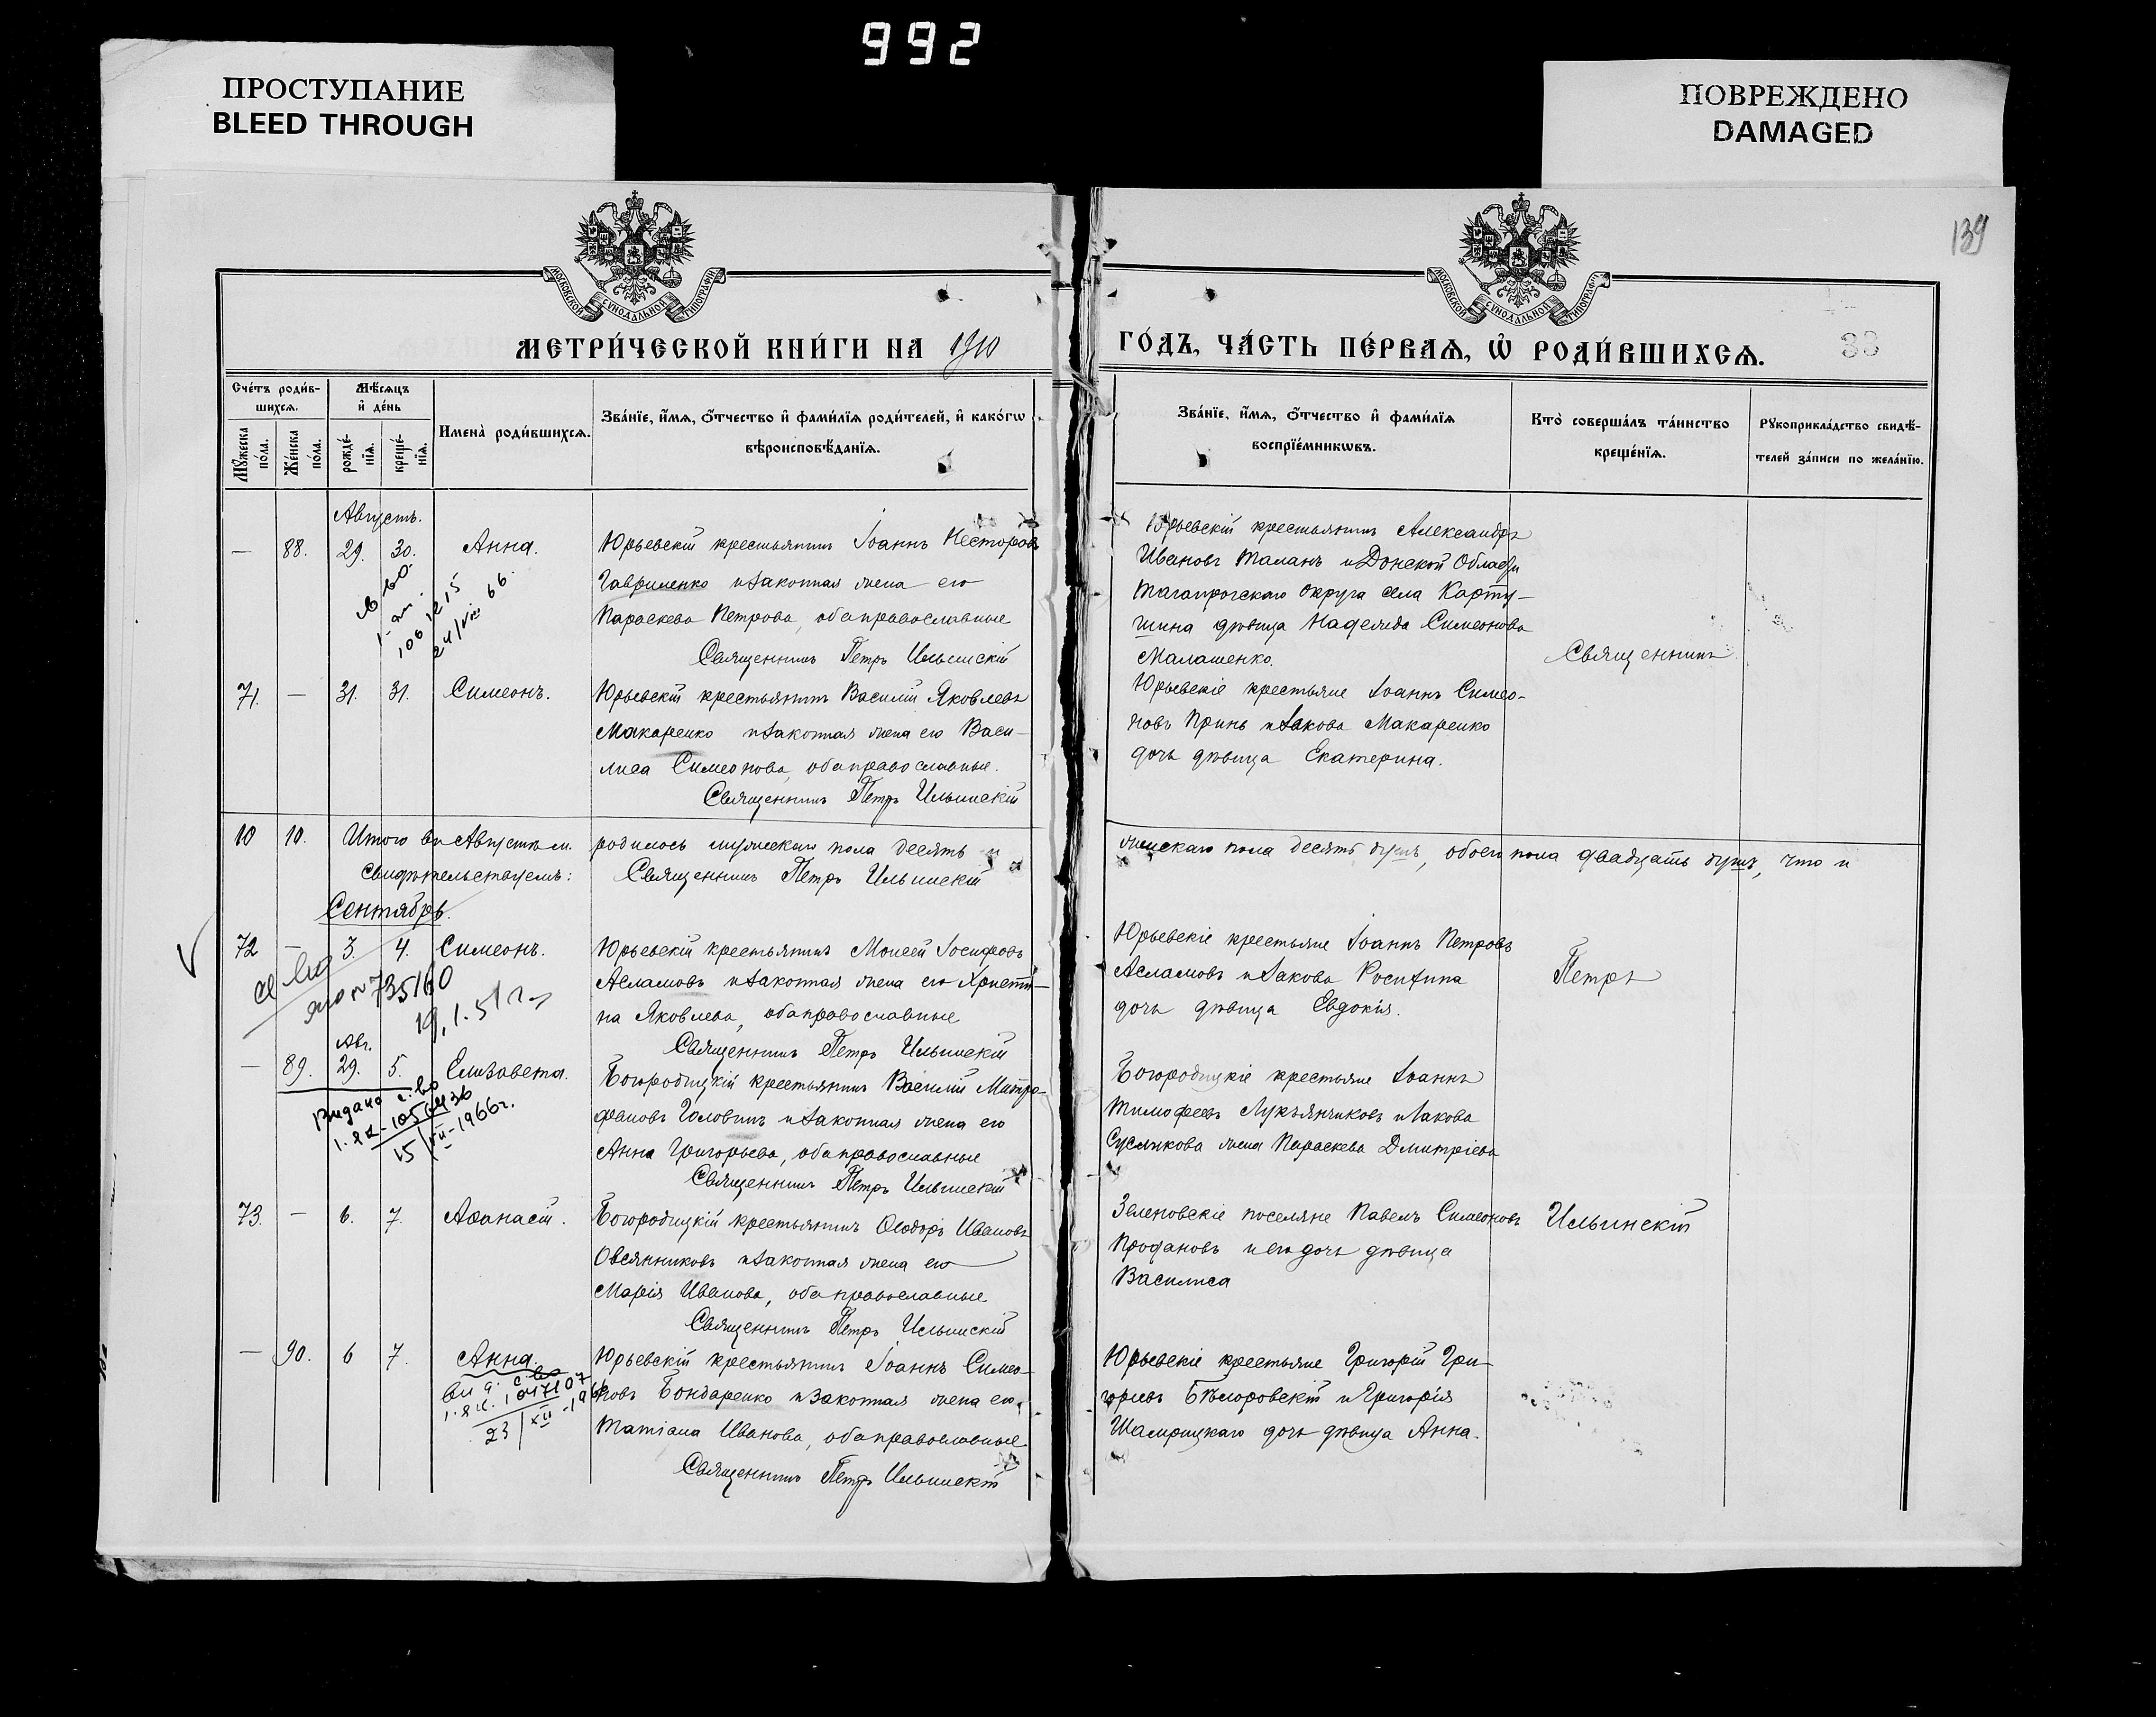 992
ПРОСТУПАНИЕ
BLEED THROUGH
ПОВРЕЖДЕНО
DAMAGED
139
МОСКОВСКОЙ СУНОДАЛЬНОЙ ТИПОГРАФІИ
МОСКОВСКОЙ СУНОДАЛЬНОЙ ТИПОГРАФІИ
МЕТРИ́ЧЕСКОЙ КНИ́ГИ НА 1910
ГО́ДЪ, ЧА́СТЬ ПЕ́РВАѦ, Ѡ҆ РОДИ́ВШИХСѦ.
33
Сче́тъ роди́в-
шихсѧ.
Мꙋ́жеска по́ла.
Же́нска по́ла.
Мѣ́сѧцъ
и҆ де́нь
рожде́-
нїѧ.
креще́-
нїѧ.
Имена̀ роди́вшихсѧ.
Зва́нїе, и҆́мѧ, ѻ҆́тчество и҆ фами́лїѧ роди́телей, и҆ како́гѡ
вѣроисповѣ́данїѧ.
Зва́нїе, и҆́мѧ, ѻ҆́тчество и҆ фами́лїѧ
воспрїе́мникѡвъ.
Кто̀ соверша́лъ та́инство
креще́нїѧ.
Рꙋкоприкла́дство свидѣ́-
телей за́писи по жела́нїю.
Августъ.
— 88. 29. 30. Анна.
Юрьевскій крестьянинъ Іоаннъ Несторовъ
Гавриленко и законная жена его
Параскева Петрова, оба православные
Священникъ Петръ Ильинскій
Юрьевскій крестьянинъ Александръ
Ивановъ Таланъ и Донской Области
Таганрогскаго округа села Карту-
шина дѣвица Надежда Симеонова
Малашенко.
Священникъ
24/VIII 66.
71. — 31. 31. Симеонъ.
Юрьевскій крестьянинъ Василій Яковлевъ
Макаренко и законная жена его Васи-
лиса Симеонова, оба православные.
Священникъ Петръ Ильинскій
Юрьевскіе крестьяне Іоаннъ Симео-
новъ Принь и Іакова Макаренко
дочь дѣвица Екатерина.
10 10. Итого въ Августѣ м. родилось мужескаго пола десять и
женскаго пола десять душъ, обоего пола двадцать душъ, что и
свидѣтельствуемъ: Священникъ Петръ Ильинскій
Сентябрь.
72 — 3. 4. Симеонъ.
735160
19.1.51 г.
Юрьевскій крестьянинъ Моисей Іосифовъ
Асламовъ и законная жена его Христи-
на Яковлева, оба православные
Священникъ Петръ Ильинскій
Юрьевскіе крестьяне Іоаннъ Петровъ
Асламовъ и Іакова
дочь дѣвица Евдокія.
Петръ
Авг.
— 89. 29. 5. Елизавета.
Видано с-во
15/VII-1966г.
Богородицкій крестьянинъ Василій Митро-
фановъ Головинъ и законная жена его
Анна Григорьева, оба православные
Священникъ Петръ Ильинскій
Богородицкіе крестьяне Іоаннъ
Тимофеевъ Лукъянчиковъ и Іакова
Сусликова жена Параскева Дмитріева
73. — 6. 7. Афанасій.
Богородицкій крестьянинъ Ѳеодоръ Ивановъ
Овсянниковъ и законная жена его
Марія Иванова, оба православные
Священникъ Петръ Ильинскій
Зеленовскіе поселяне Павелъ Симеоновъ
Профановъ и его дочь дѣвица
Василиса
Ильинскій
— 90. 6 7. Анна.
вид. с-во
23/XII-196
Юрьевскій крестьянинъ Іоаннъ Симео-
новъ Бондаренко и законная жена его
Татіана Иванова, оба православные
Священникъ Петръ Ильинскій
Юрьевскіе крестьяне Григорій Гри-
горьевъ и Григорія
дочь дѣвица Анна.